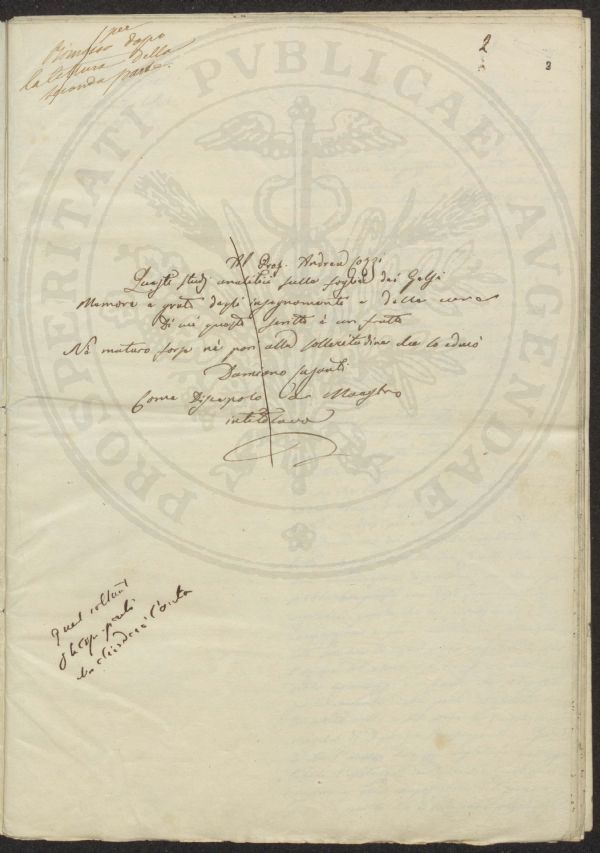 per
Rimesso dopo
la lettura della
seconda parte.
2
3
PROSPERITATI PVBLICAE AVGENDAE
Al Prof. Andrea Cozzi
Questi studj analitici sulla foglia dei Gelsi
Memore e grato degli insegnamenti e delle cure
Di cui questo scritto è un frutto
Nè maturo forse nè pari alla sollecitudine che lo educò
Damiano Casanti
Come Discepolo a Maestro
intitolava